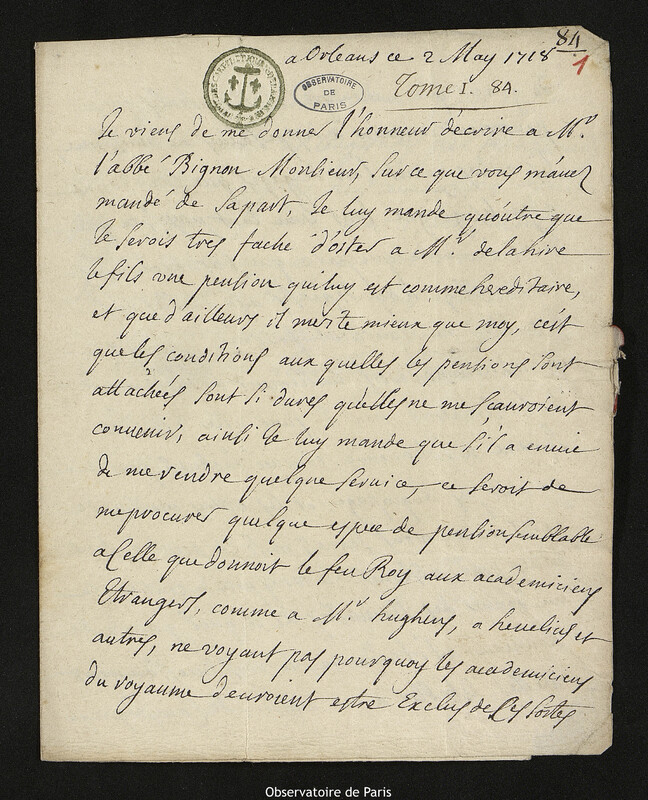 84
1
a Orleans ce 2 May 1718
OBSERVATOIRE
DE
PARIS
Tome I. 84.
Je viens de me donner l'honneur d'ecrire a Mr
l'abbé Bignon Monsieur, sur ce que vous m'avez
mandé de sa part, Je luy mande qu'outre que
Je serois tres faché d'oster a Mr delahire
le fils une pension qui luy est comme hereditaire,
et que d'ailleurs il merite mieux que moy, c'est
que les conditions aux quelles les pensions sont
attachées sont si dures qu'elles ne me sçauroient
convenir, ainsi Je luy mande que s'il a envie
de me rendre quelque service, ce seroit de
me procurer quelque espece de pension semblable
a Celle que donnoit le feu Roy aux academiciens
Etrangers, comme a Mr hughens, a hevelius et
autres, ne voyant pas pourquoy les academiciens
du royaume devroient estre Exclus de Ces sortes
Observatoire de Paris